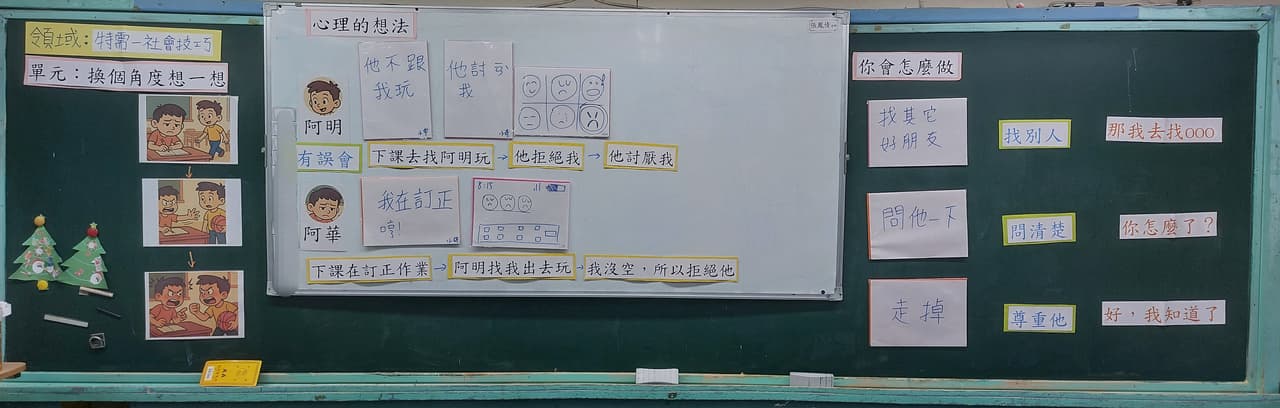 領域：特需－社會技巧
單元：換個角度想一想
心理的想法
阿明
他不跟
我玩
他討厭
我
有誤會
下課去找阿明玩
→
他拒絕我
→
他討厭我
阿華
我在訂正
哼!
8:15
下課在訂正作業
→
阿明找我出去玩
→
我沒空，所以拒絕他
你會怎麼做
找其它
好朋友
找別人
那我去找ooo
問他一下
問清楚
你怎麼了？
走掉
尊重他
好，我知道了